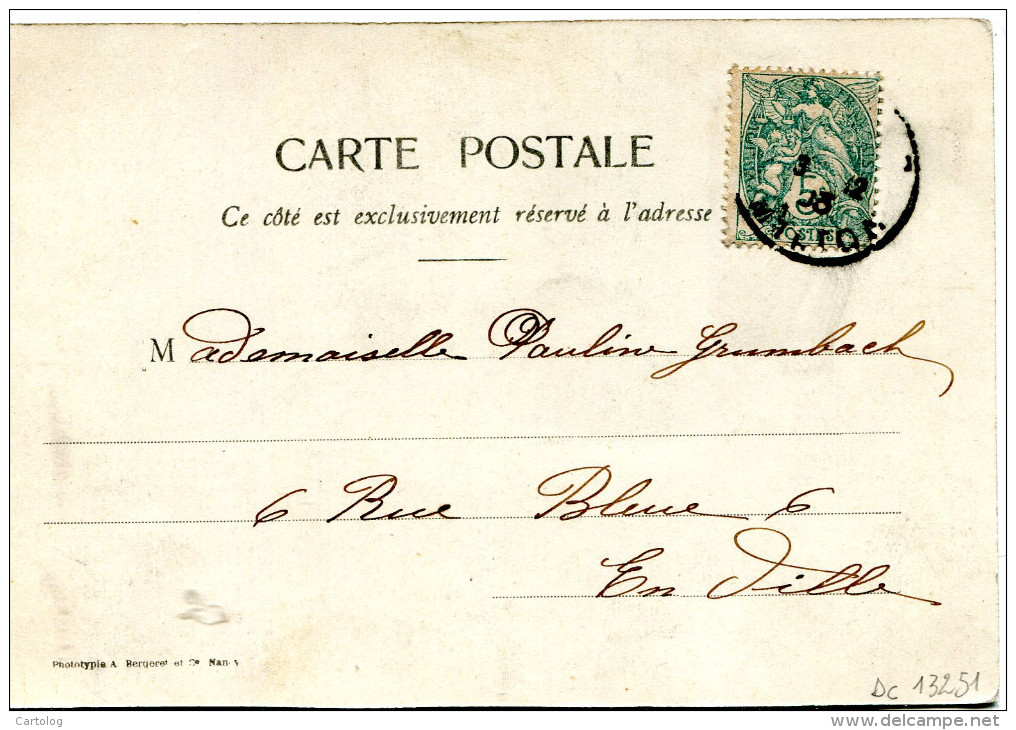 CARTE POSTALE
Ce côté est exclusivement réservé à l'adresse
5
POSTES
3 12
03
Mademoiselle Pauline Grumbach
6 Rue Bleue 6
En Ville
Phototypie A. Bergeret et Cie Nancy
DC 13251
Cartolog
www.delcampe.net